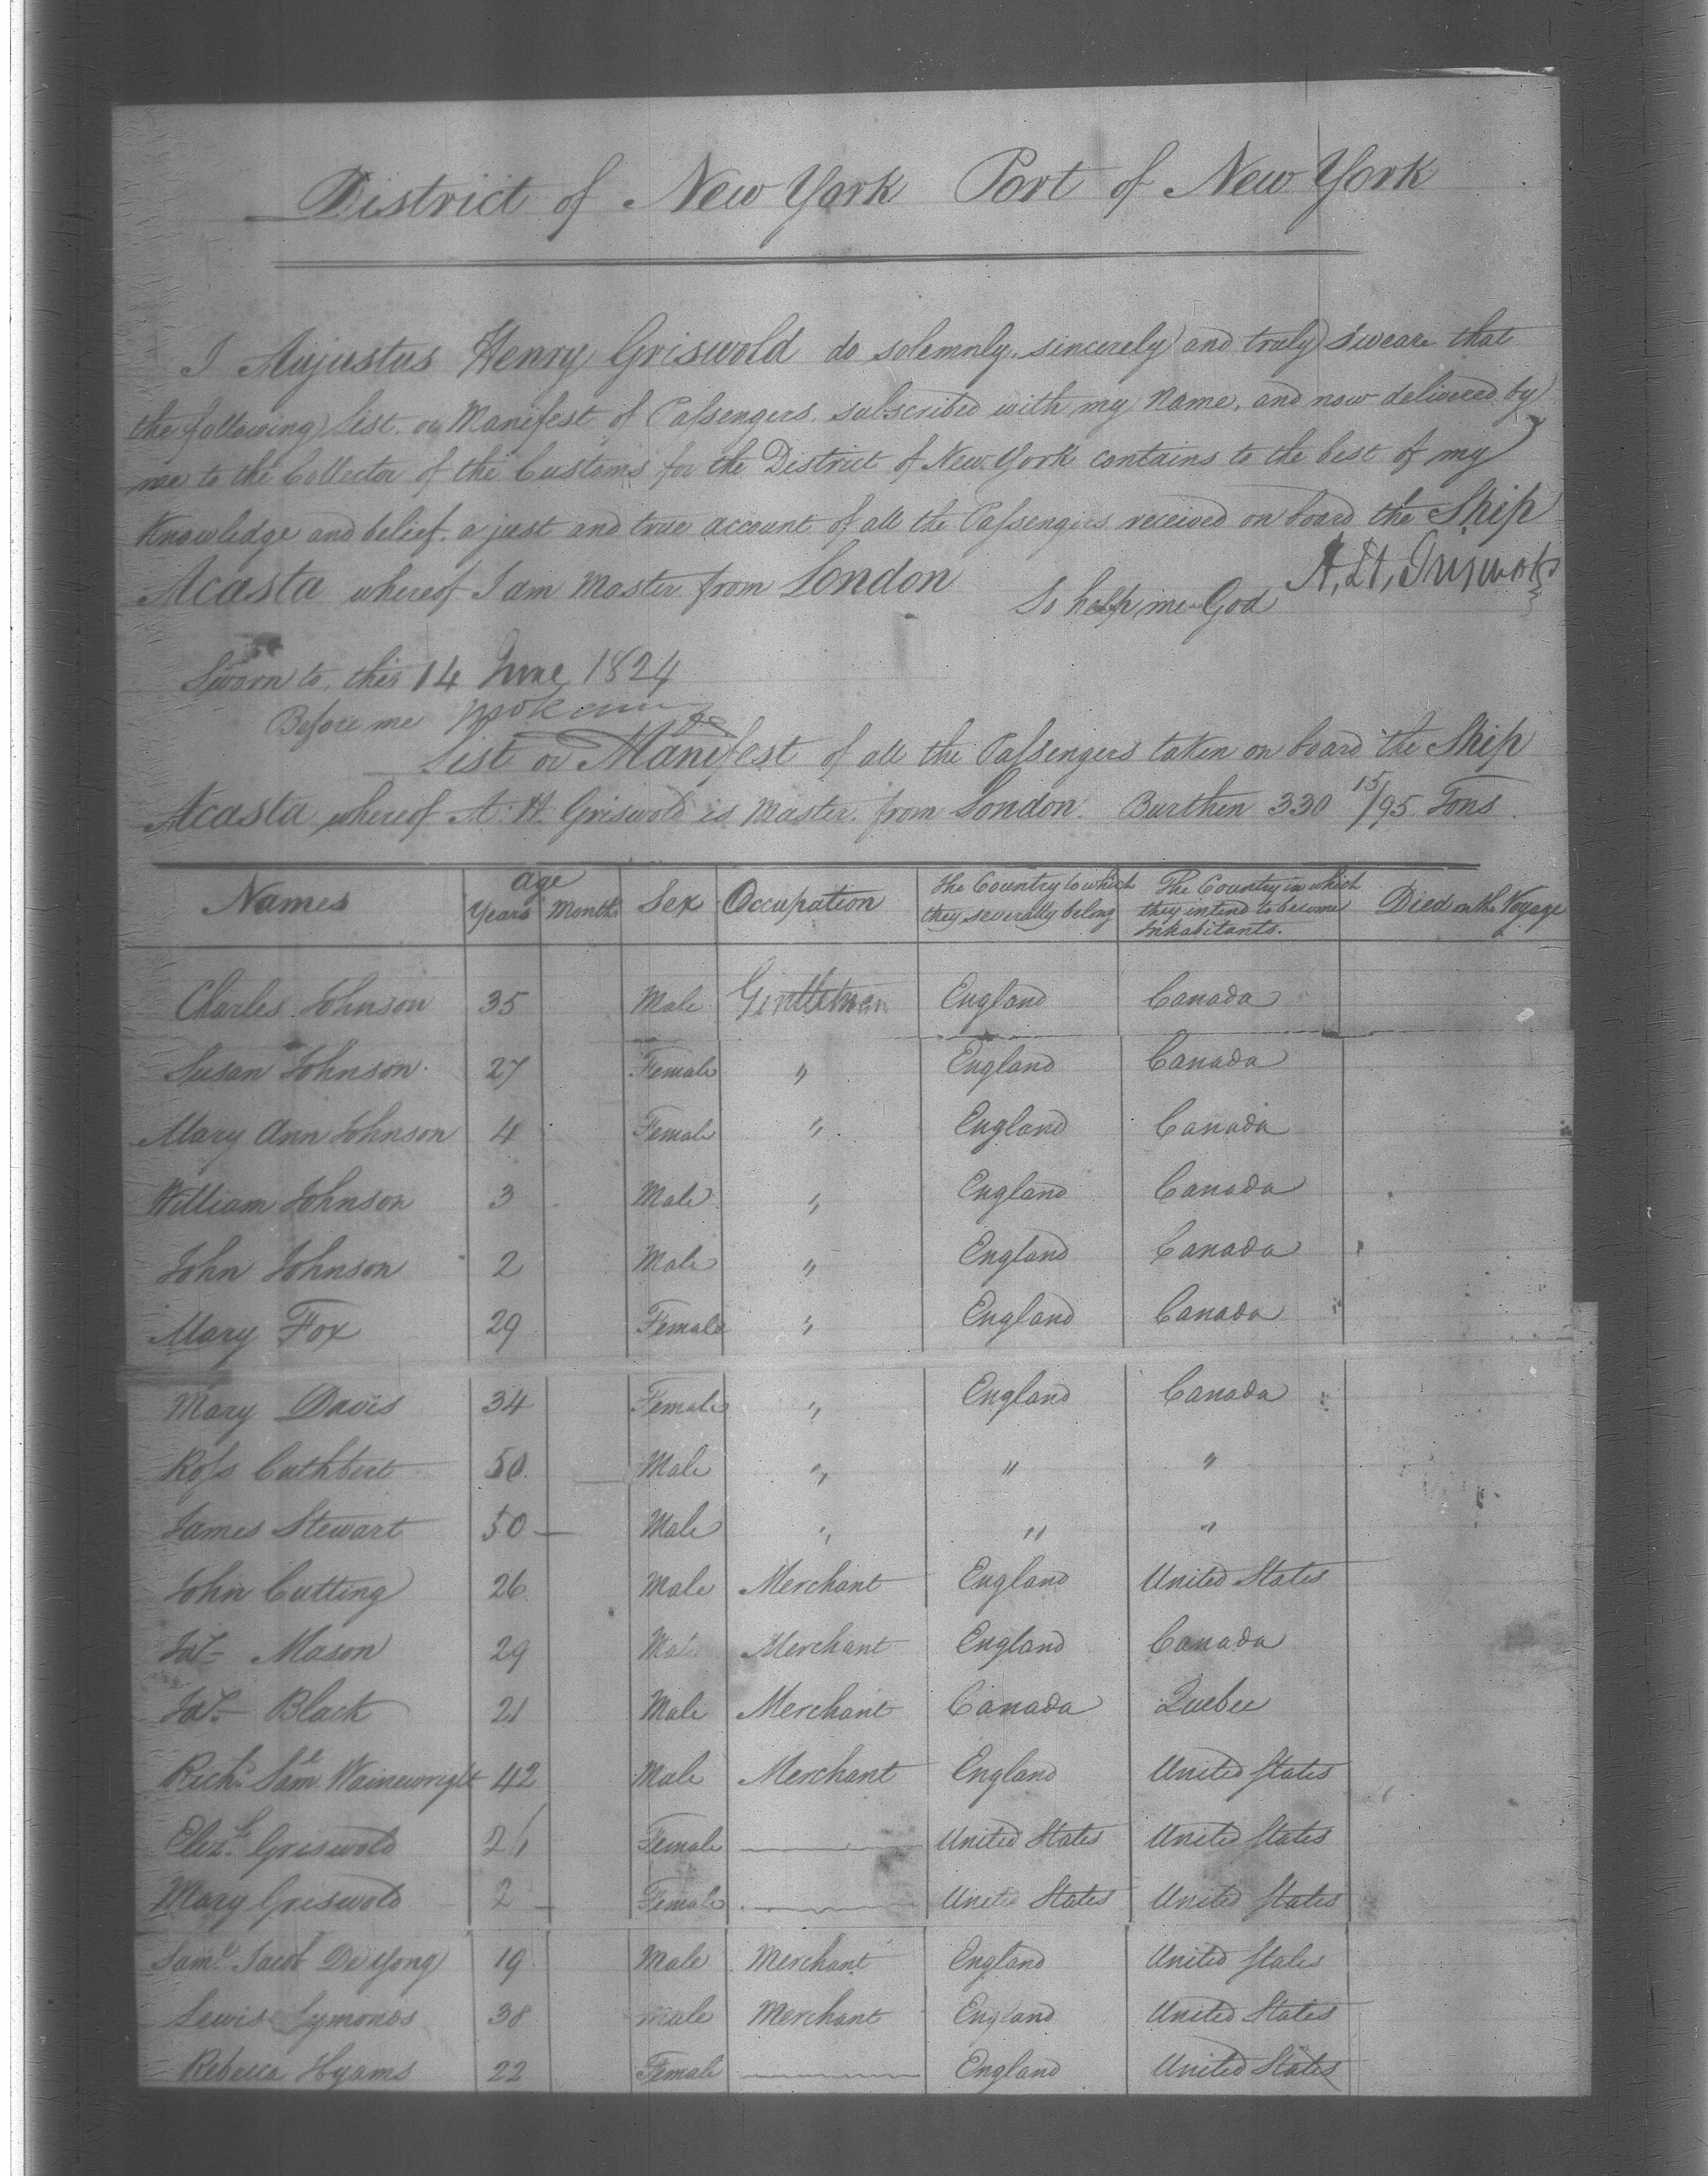 District of New York Port of New York
I Augustus Henry Griswold do solemnly, sincerely and truly swear that
the following List or Manifest of Passengers subscribed with my Name, and now delivered by
me to the Collector of the Customs for the District of New York contains to the best of my
Knowledge and belief, a just and true account of all the Passengers received on board the Ship
Acasta whereof I am Master from London
So help me God A. H. Griswold
Sworn to this 14 June 1824
Before me
List or Manifest of all the Passengers taken on board the Ship
Acasta whereof A. H. Griswold is Master from London. Burthen 330 15/95 Tons.
Names age Years Months Sex Occupation The Country to which they severally belong The Country in which they intend to become Inhabitants. Died on the Voyage
Charles Johnson 35 Male Gentleman England Canada
Susan Johnson 27 Female " England Canada
Mary Ann Johnson 4 Female " England Canada
William Johnson 3 Male " England Canada
John Johnson 2 Male " England Canada
Mary Fox 29 Female " England Canada
Mary Davis 34 Female " England Canada
Ross Cuthbert 50 Male " " "
James Stewart 50 — Male " " "
John Cutting 26 Male Merchant England United States
Mason 29 Male Merchant England Canada
Black 21 Male Merchant Canada Quebec
Richd. Saml. Wainewright 42 Male Merchant England United States
Elizh. Griswold Female — United States United States
Mary Griswold 2 — Female — United States United States
Saml. Jacob De Yong 19 Male Merchant England United States
Lewis Symonds 38 Male Merchant England United States
Rebecca Hyams 22 Female — England United States